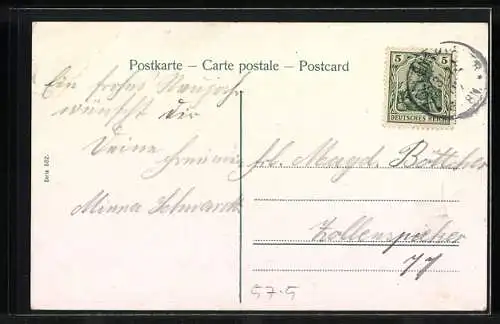 Postkarte – Carte postale – Postcard
5 5
DEUTSCHES REICH
Ein frohes Neujahr
wünscht dir
Deine
Minna
Frl. Magd. Böttcher
Zollenspieker
77
57-5